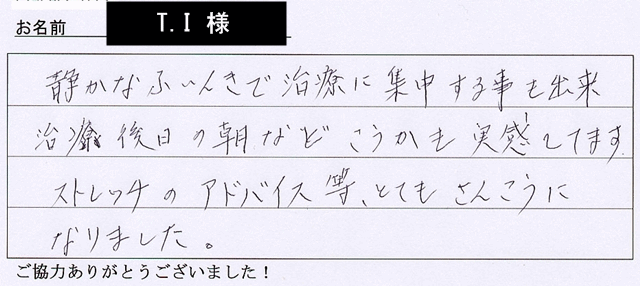 お名前 T.I 様
静かなふいんきで治療に集中する事も出来
治療後日の朝などこうかも実感してます
ストレッチのアドバイス等、とてもさんこうに
なりました。
ご協力ありがとうございました！